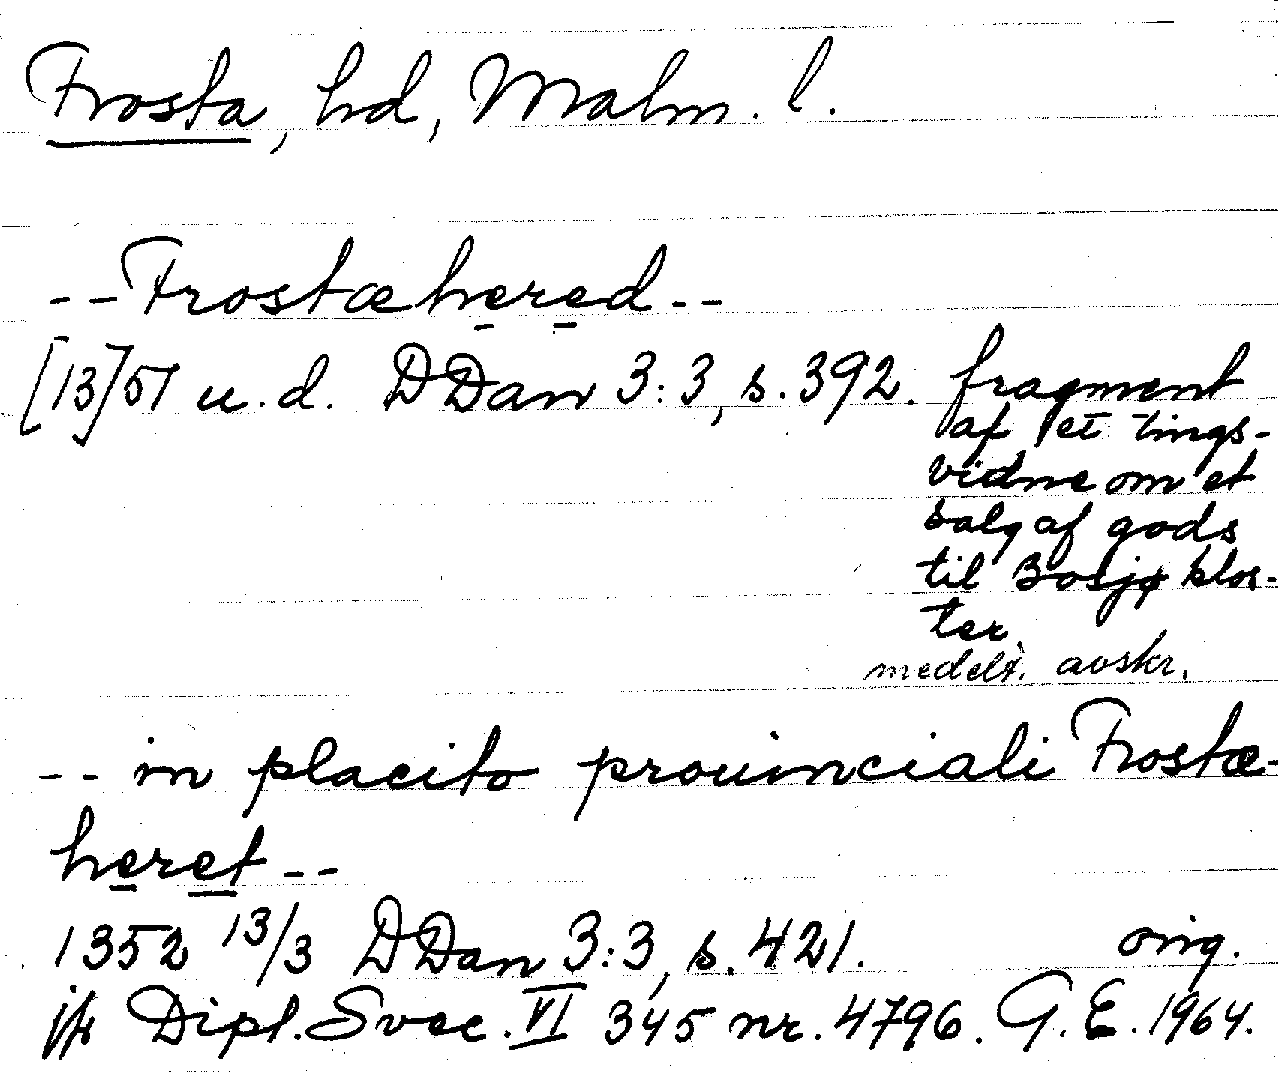 Frosta, hd, Malm. l.
-- Frostæhered --
[13]51 u.d. DDan 3:3, s. 392. fragment
af et tings-
vidne om et
salg af gods
til Bosjø klos-
ter.
medelt. avskr.
-- in placito prouinciali Frostæ-
heret --
1352 13/3 DDan 3:3, s. 421. orig.
jfr Dipl. Svec. VI 345 nr. 4796. G.E. 1964.